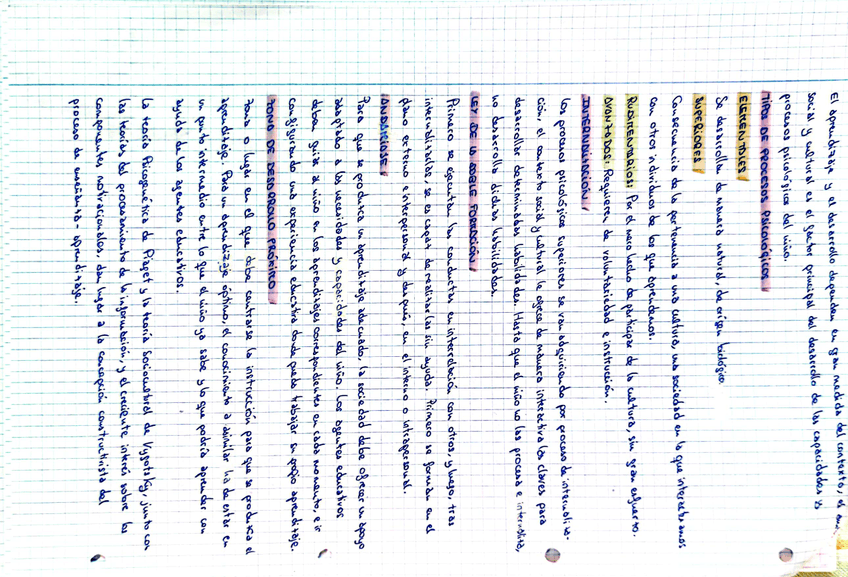 El aprendizaje y el desarrollo dependen en gran medida del contexto, el
social y cultural es el gestor principal del desarrollo de las capacidades y
procesos psicológicos del niño.
TIPOS DE PROCESOS PSICOLÓGICOS
ELEMENTALES
Se desarrollan de manera natural, de origen biológico.
SUPERIORES
Consecuencia de la pertenencia a una cultura, una sociedad en la que interactuamos
con otros individuos de los que aprendemos.
RUDIMENTARIOS: Por el mero hecho de participar de la cultura, sin gran esfuerzo.
AVANZADOS: Requieren de voluntariedad e instrucción.
INTERNALIZACIÓN
Los procesos psicológicos superiores se van adquiriendo por proceso de internaliza-
ción; el contexto social y cultural le ofrece de manera interactiva las claves para
desarrollar determinadas habilidades. Hasta que el niño no las procesa e internaliza,
no desarrolla dichas habilidades.
LEY DE LA DOBLE FORMACIÓN
Primero se ejecutan las conductas en interrelación con otros, y luego, tras
internalizarlas se es capaz de realizarlas sin ayuda. Primero se forman en el
plano externo e interpersonal y después, en el interno o intrapersonal.
ANDAMIAJE
Para que se produzca un aprendizaje adecuado, la sociedad debe ofrecer un apoyo
adaptado a las necesidades y capacidades del niño. Los agentes educativos
deben guiar al niño en los aprendizajes correspondientes en cada momento, e ir
configurando una experiencia educativa donde pueda trabajar su propio aprendizaje.
ZONA DE DESARROLLO PRÓXIMO
Zona o lugar en el que debe centrarse la instrucción para que se produzca el
aprendizaje. Para un aprendizaje óptimo, el conocimiento a asimilar ha de estar en
un punto intermedio entre lo que el niño ya sabe y lo que podría aprender con
ayuda de los agentes educativos.
La teoría Psicogenética de Piaget y la teoría sociocultural de Vygotsky, junto con
las teorías del procesamiento de la información, y el creciente interés sobre los
componentes motivacionales, dan lugar a la concepción constructivista del
proceso de enseñanza-aprendizaje.